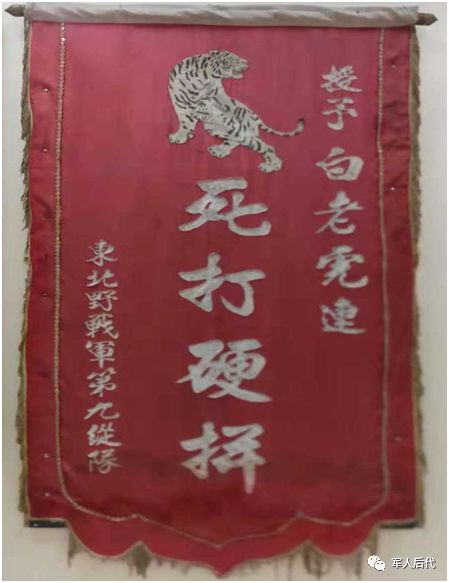 授予白老虎連
死打硬拼
東北野戰軍第九縱隊
军人后代